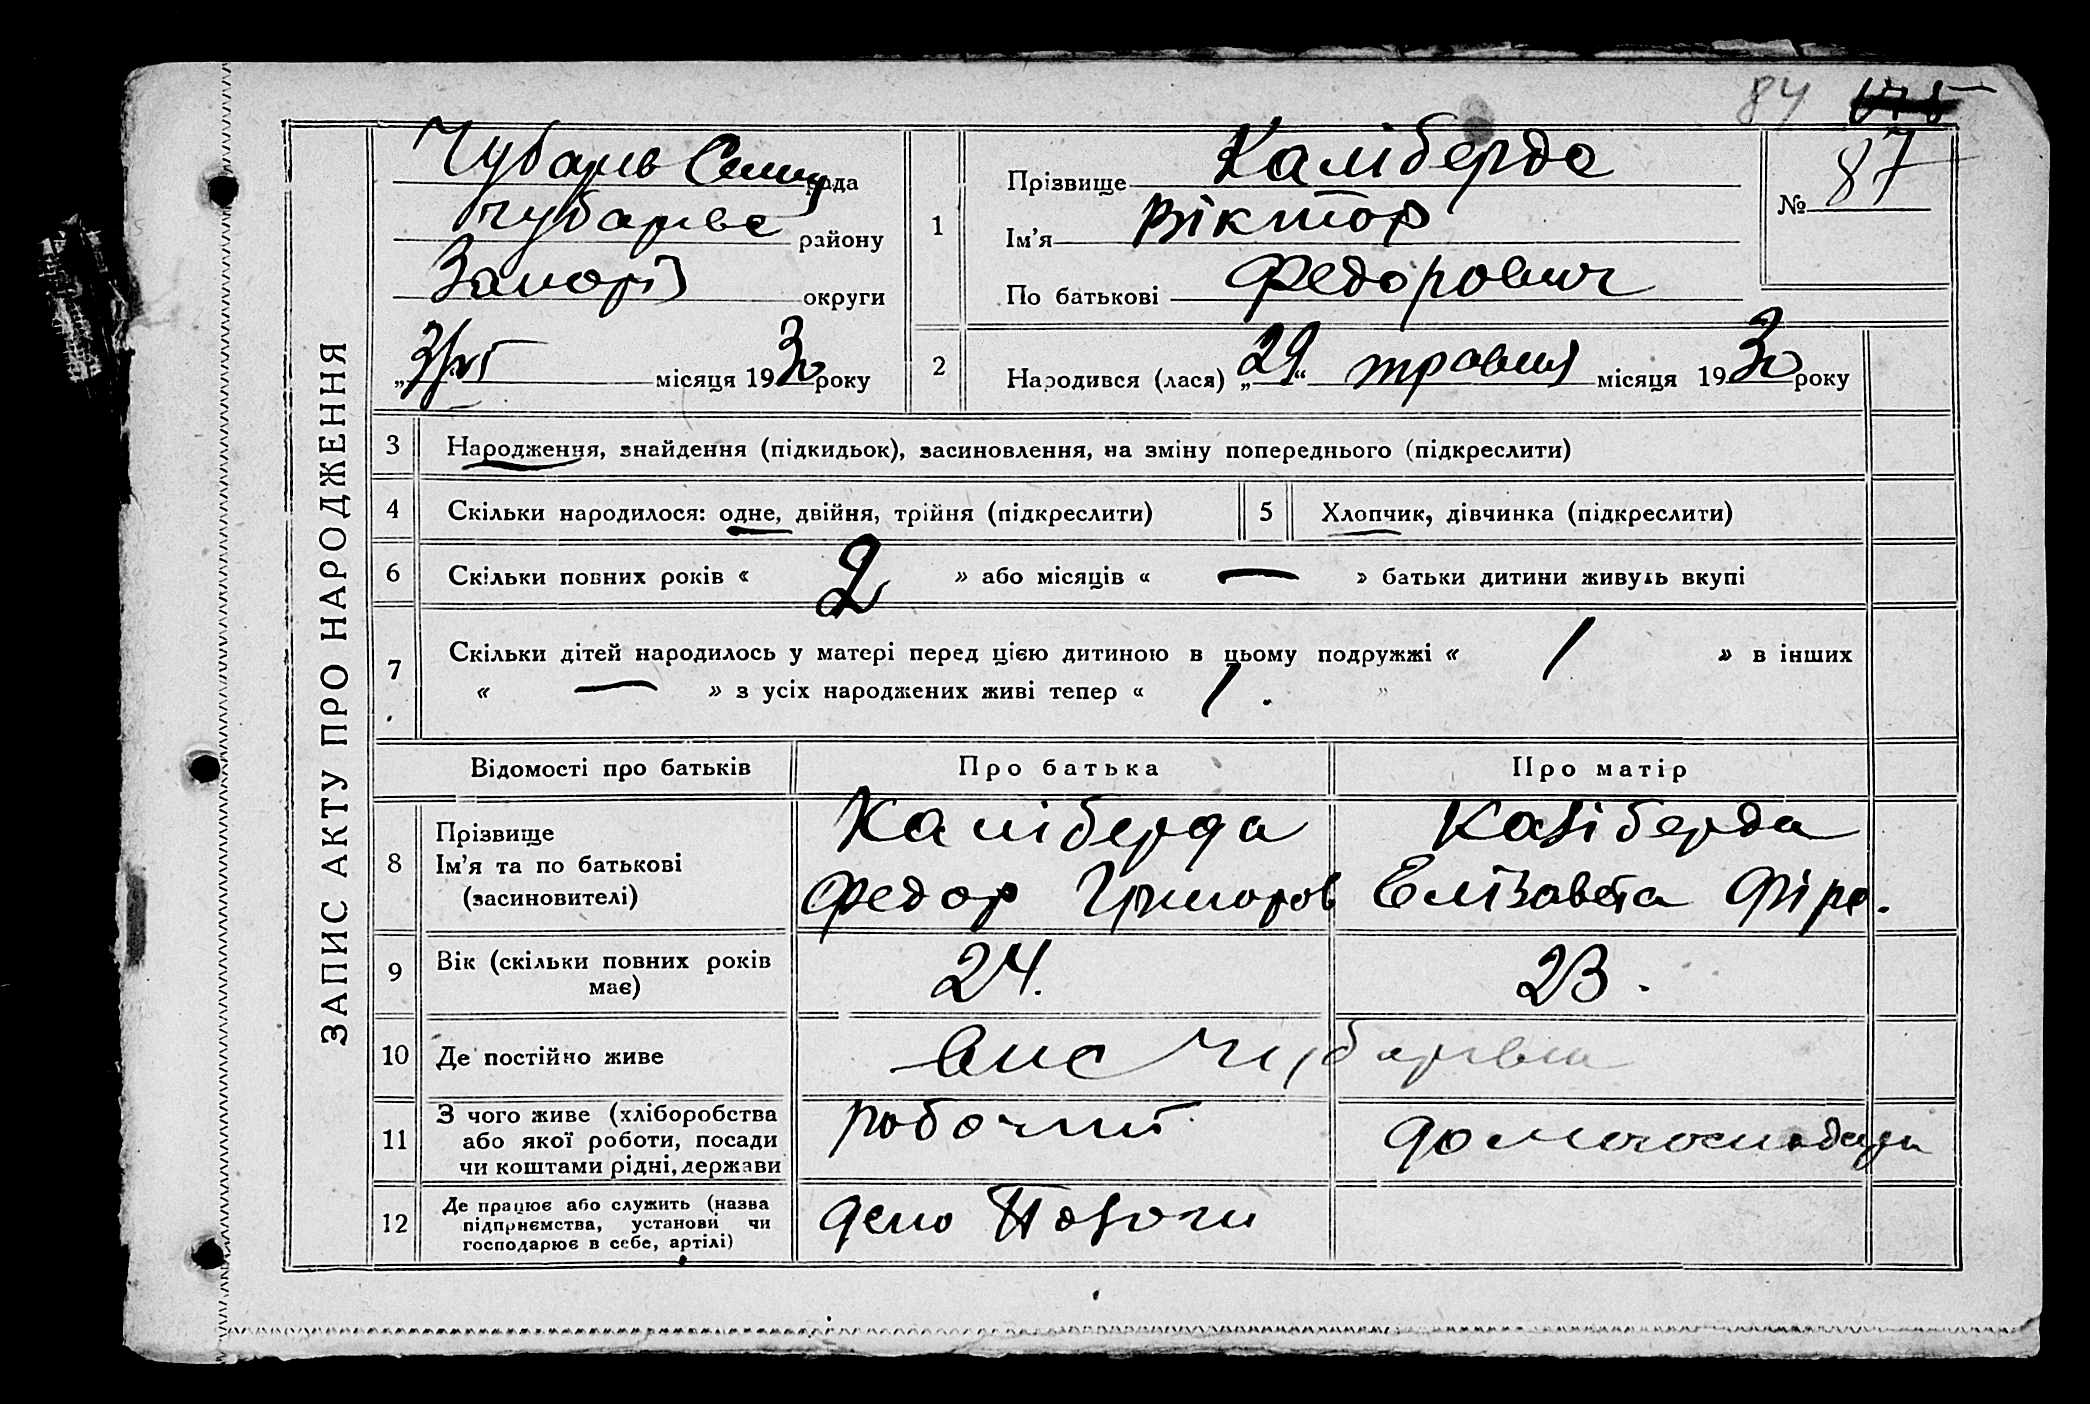 84
87
ЗАПИС АКТУ ПРО НАРОДЖЕННЯ
Чубарів Селищ рада
Чубарівс району
Запоріз округи
„ місяця 1930 року
1
Прізвище Каліберда
Ім'я Віктор
По батькові Федорович
№ 87
2
Народився (лася) „29“ травня місяця 1930 року
3 Народження, знайдення (підкидьок), засиновлення, на зміну попереднього (підкреслити)
4 Скільки народилося: одне, двійня, трійня (підкреслити) 5 Хлопчик, дівчинка (підкреслити)
6 Скільки повних років « 2 » або місяців « — » батьки дитини живуть вкупі
7 Скільки дітей народилось у матері перед цією дитиною в цьому подружжі « 1 » в інших
« — » з усіх народжених живі тепер « 1. »
Відомості про батьків Про батька Про матір
8 Прізвище Каліберда Каліберда
Ім'я та по батькові Федор Григоров Елізавета
(засиновителі)
9 Вік (скільки повних років має) 24. 23.
10 Де постійно живе Чубарівка
11 З чого живе (хліборобства або якої роботи, посади чи коштами рідні, держави робочий домогосподарка
12 Де працює або служить (назва підприємства, установи чи господарює в себе, артілі) депо Пологи